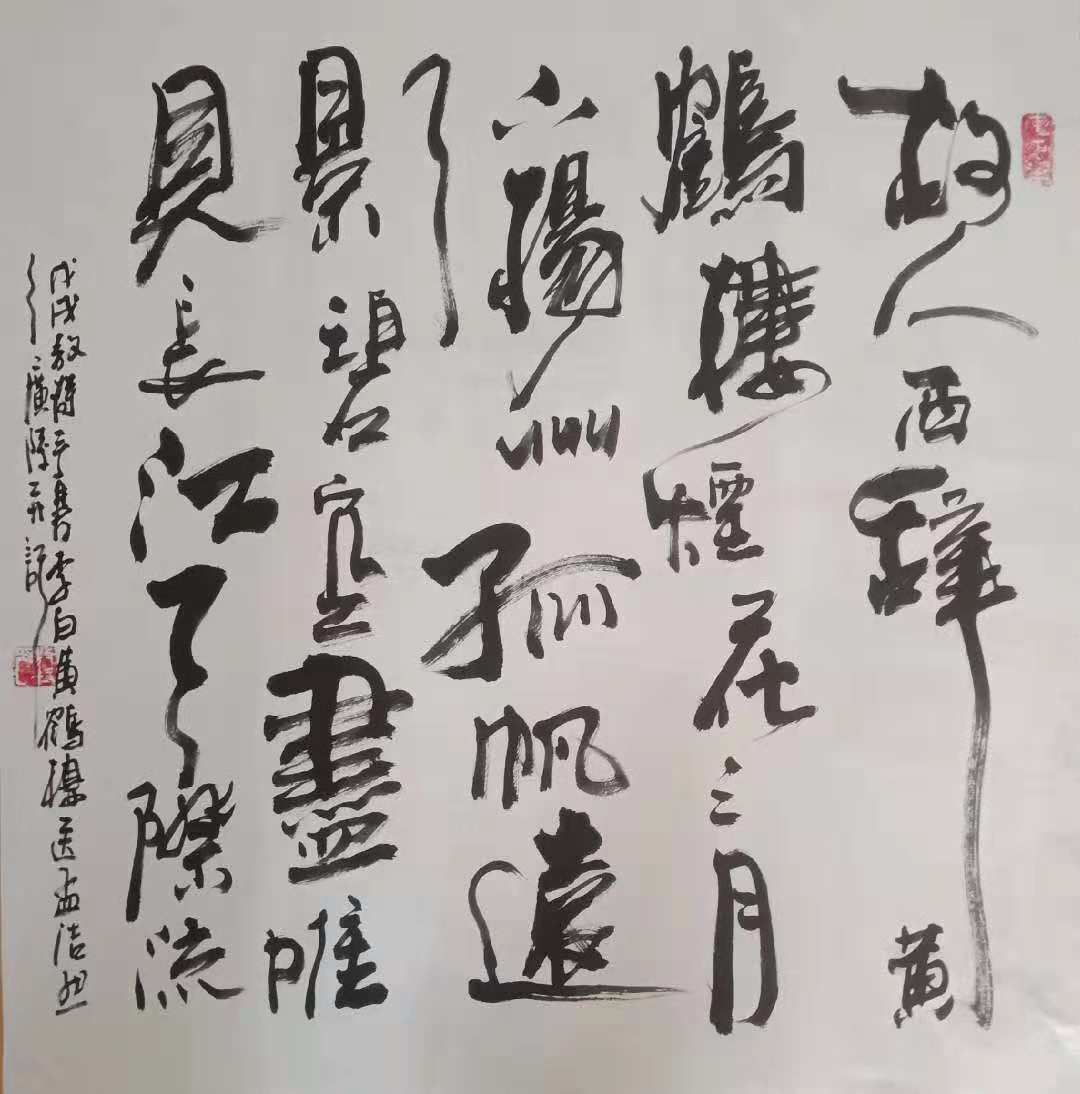 故人西辭黄
鶴樓煙花三月
下揚州孤帆遠
影碧空盡唯
見長江天際流
戊戌李白黄鶴樓送孟浩然
之廣陵詩